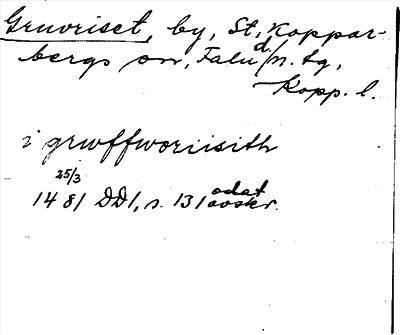 Gruvriset, by, St. Koppar-
bergs sn, Falu d/n. tg,
Kopp. l.
i grwffworiisith
25/3
1481 DD1, s. 131 odat. avskr.